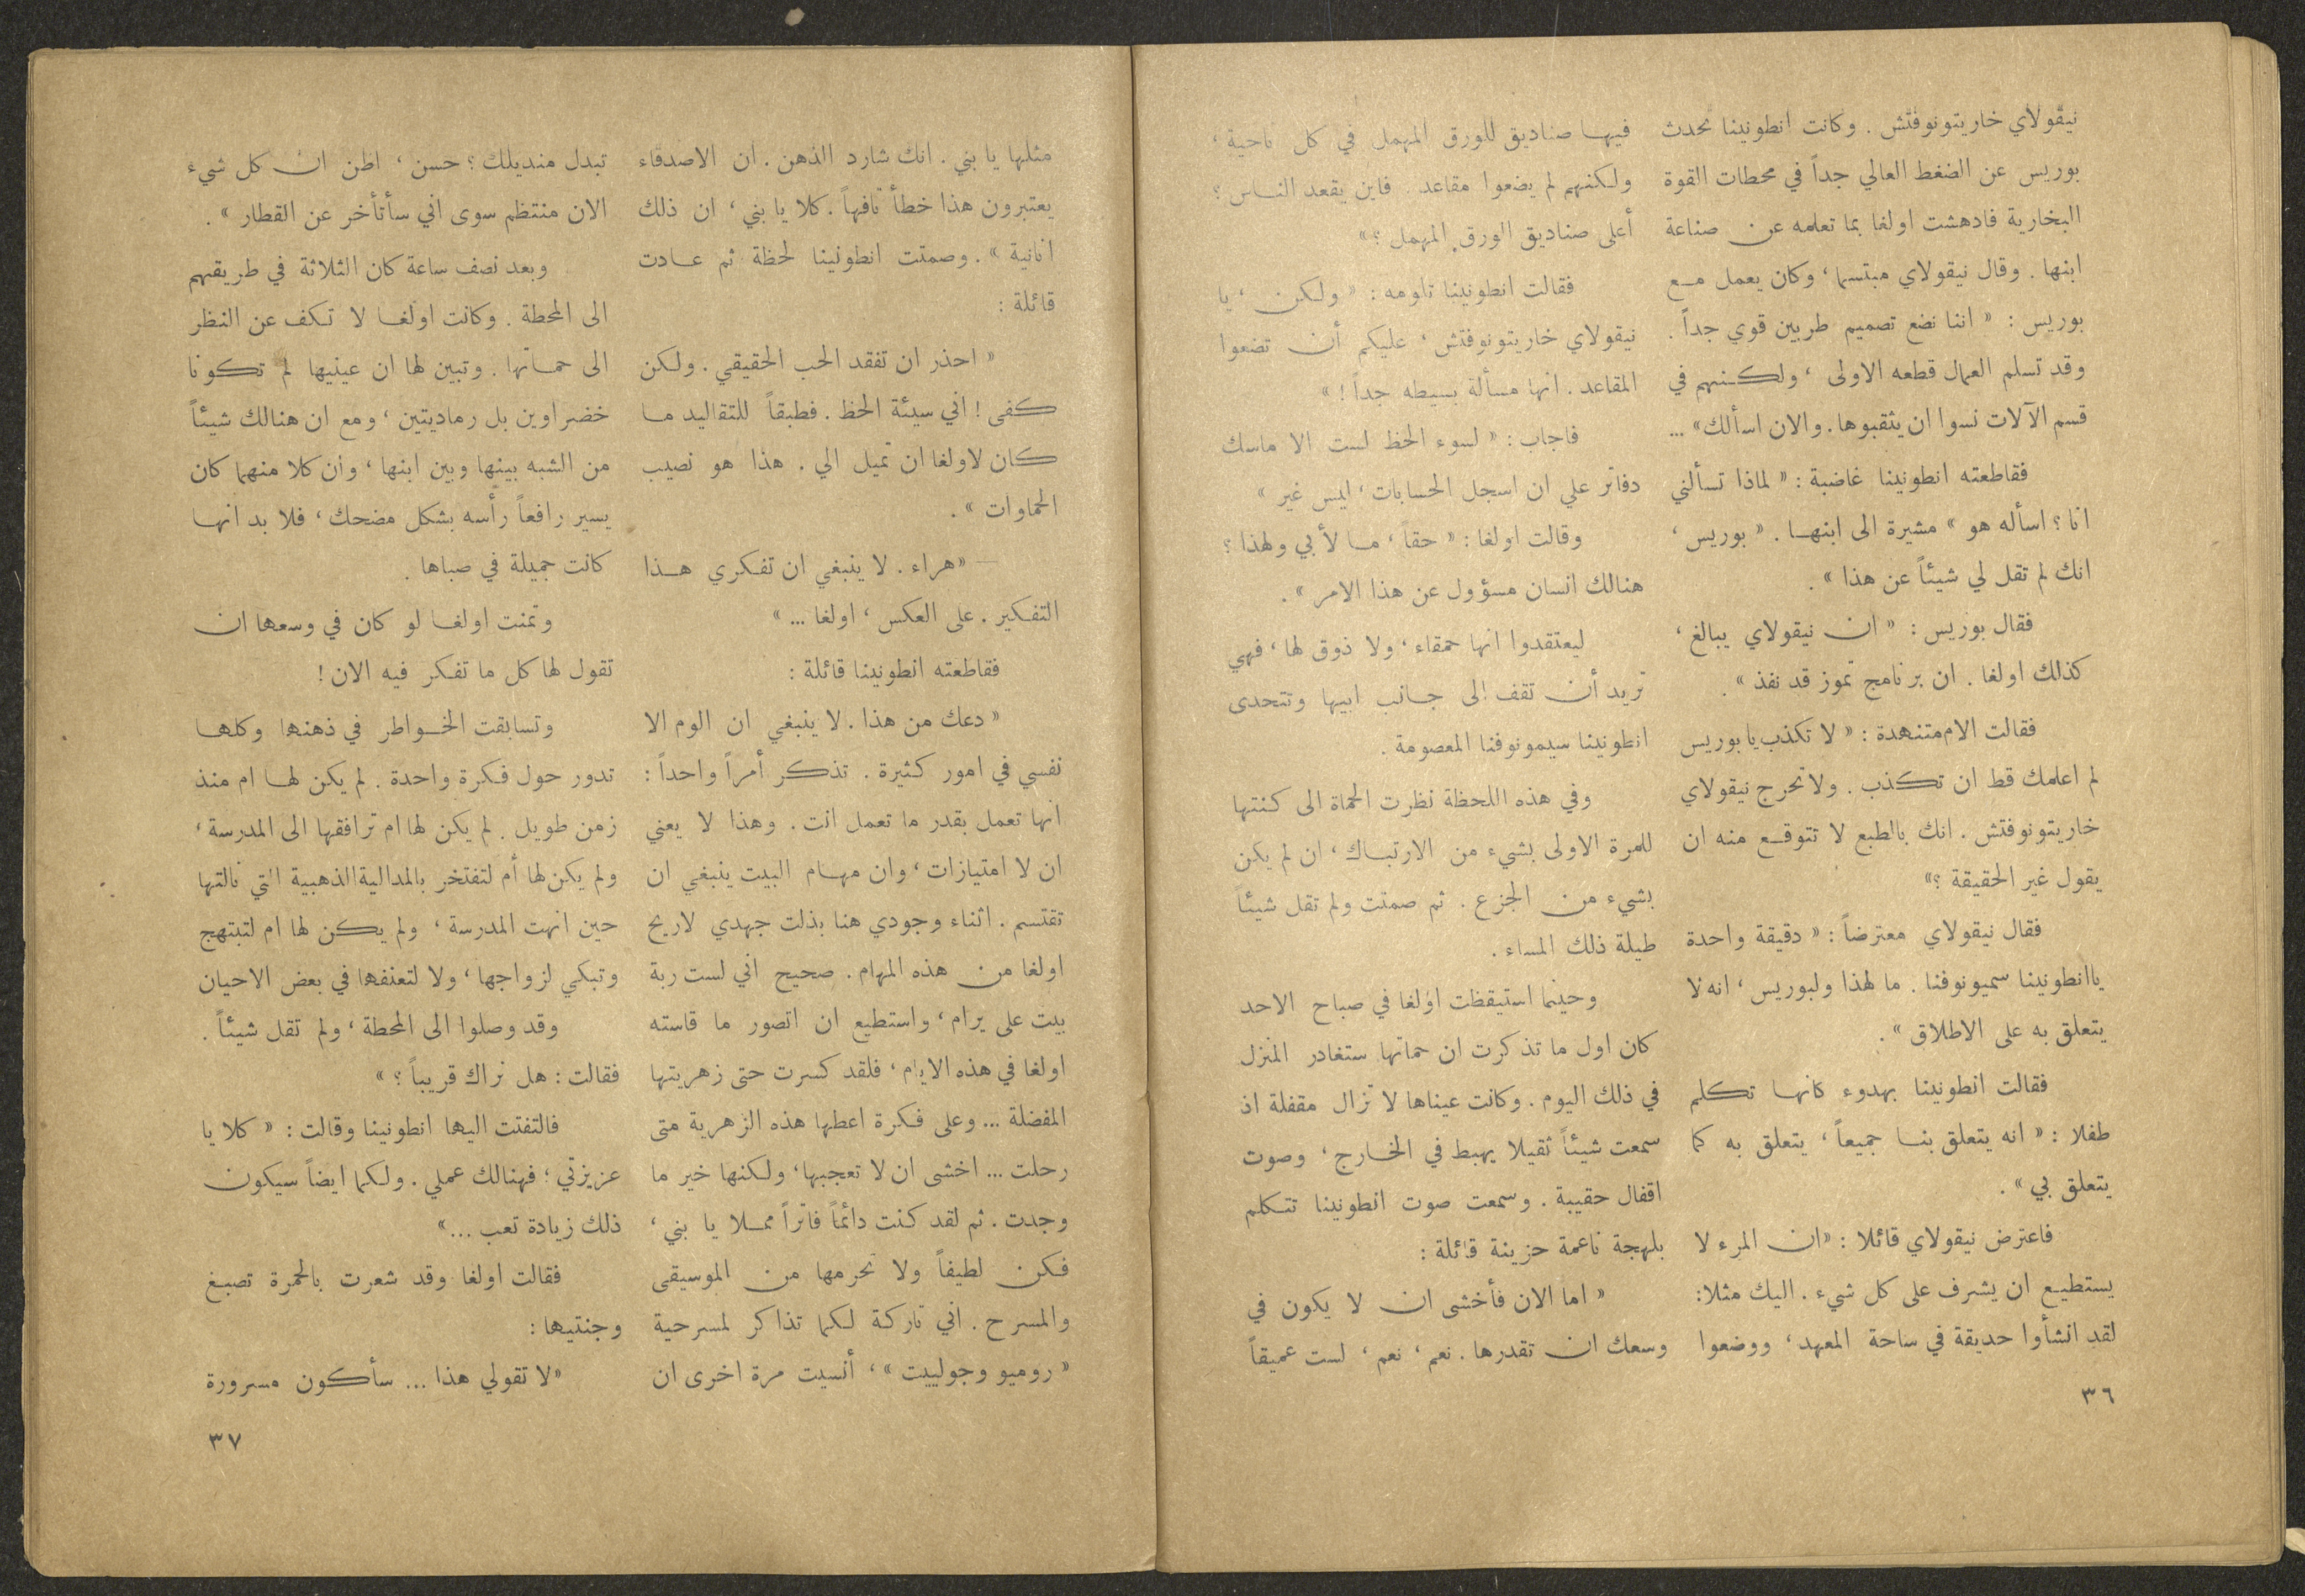 نيقولاي خاريتونوفتش . وكانت انطونينا تحدث
بوريس عن الضغط العالي جداً في محطات القوة
البخارية فادهشت اولغا بما تعلمه عن صناعة
ابنها . وقال نيقولاي مبتسما ، وكان يعمل مع
بوريس : « اننا نضع تصميم طربين قوي جداً .
وقد تسلم العمال قطعه الاولى ، ولكنهم في
قسم الآلات نسوا ان يثقبوها . والان اسألك» ...
فقاطعته انطونينا غاضبة : « لماذا تسألني
انا ؟ اسأله هو » مشيرة الى ابنها . « بوريس ،
انك لم تقل لي شيئاً عن هذا » .
فقال بوريس : « ان نيقولاي يبالغ ،
كذلك اولغا . ان برنامج تموز قد نفذ » .
فقالت الام متنهدة : « لا تكذب يا بوريس
لم اعلمك قط ان تكذب . ولا تحرج نيقولاي
خاريتونوفتش . انك بالطبع لا تتوقع منه ان
يقول غير الحقيقة ؟»
فقال نيقولاي معترضاً : « دقيقة واحدة
ياانطونينا سميونوفنا . ما لهذا ولبوريس ، انه لا
يتعلق به على الاطلاق » .
فقالت انطونينا بهدوء كانها تكلم
طفلا : « انه يتعلق بنا جميعاً ، يتعلق به كما
يتعلق بي » .
فاعترض نيقولاي قائلا : «ان المرء لا
يستطيع ان يشرف على كل شيء . اليك مثلا :
لقد انشأوا حديقة في ساحة المعهد ، ووضعوا
فيها صناديق للورق المهمل في كل ناحية ،
ولكنهم لم يضعوا مقاعد . فاين يقعد الناس ؟
أعلى صناديق الورق المهمل ؟»
فقالت انطونينا تلومه : « ولكن ، يا
نيقولاي خاريتونوفتش ، عليكم أن تضعوا
المقاعد . انها مسألة بسيطه جداً ! »
فاجاب : « لسوء الحظ لست الا ماسك
دفاتر علي ان اسجل الحسابات ، ليس غير »
وقالت اولغا : « حقاً ، ما لأبي ولهذا ؟
هنالك انسان مسؤول عن هذا الامر » .
ليعتقدوا انها حمقاء ، ولا ذوق لها ، فهي
تريد أن تقف إلى جانب ابيها وتتحدى
انطونينا سيمونوفنا المعصومة .
وفي هذه اللحظة نظرت الحماة الى كنتها
للمرة الاولى بشيء من الارتباك ، ان لم يكن
بشيء من الجزع . ثم صمتت ولم تقل شيئاً
طيلة ذلك المساء .
وحينما استيقظت اولغا في صباح الاحد
كان اول ما تذكرت ان حماتها ستغادر المنزل
في ذلك اليوم . وكانت عيناها لا تزال مقفلة اذ
سمعت شيئاً ثقيلا يهبط في الخارج ، وصوت
اقفال حقيبة . وسمعت صوت انطونينا تتكلم
بلهجة ناعمة حزينة قائلة :
« اما الان فأخشى ان لا يكون في
وسعك ان تقدرها . نعم ، نعم ، لست عميقاً
٣٦
مثلها يا بني . انك شارد الذهن . ان الاصدقاء
يعتبرون هذا خطأ تافهاً . كلا يا بني ، ان ذلك
انانية » . وصمتت انطونينا لحظة ثم عادت
قائلة :
« احذر ان تفقد الحب الحقيقي . ولكن
كفى ! اني سيئة الحظ . فطبقاً للتقاليد ما
كان لاولغا ان تميل الي . هذا هو نصيب
الحماوات » .
— «هراء . لا ينبغي ان تفكري هذا
التفكير . على العكس ، اولغا ... »
فقاطعته انطونينا قائلة :
« دعك من هذا . لا ينبغي ان الوم الا
نفسي في امور كثيرة . تذكر أمراً واحداً :
انها تعمل بقدر ما تعمل انت . وهذا لا يعني
ان لا امتيازات ، وان مهام البيت ينبغي ان
تقتسم . اثناء وجودي هنا بذلت جهدي لاريح
اولغا من هذه المهام . صحيح اني لست ربة
بيت على يرام ، واستطيع ان اتصور ما قاسته
اولغا في هذه الايام ، فلقد كسرت حتى زهريتها
المفضلة ... وعلى فكرة اعطها هذه الزهرية متى
رحلت ... اخشى ان لا تعجبها ، ولكنها خير ما
وجدت . ثم لقد كنت دائماً فاتراً مملا يا بني ،
فكن لطيفاً ولا تحرمها من الموسيقى
والمسرح . اني تاركة لكما تذاكر لمسرحية
« روميو وجولييت » ، أنسيت مرة اخرى ان
تبدل منديلك ؟ حسن ، اظن ان كل شيء
الان منتظم سوى اني سأتأخر عن القطار » .
وبعد نصف ساعة كان الثلاثة في طريقهم
الى المحطة . وكانت اولغا لا تكف عن النظر
الى حماتها . وتبين لها ان عينيها لم تكونا
خضراوين بل رماديتين ، ومع ان هنالك شيئاً
من الشبه بينها وبين ابنها ، وان كلا منهما كان
يسير رافعاً رأسه بشكل مضحك ، فلا بد انها
كانت جميلة في صباها .
وتمنت اولغا لو كان في وسعها ان
تقول لها كل ما تفكر فيه الان !
وتسابقت الخواطر في ذهنها وكلها
تدور حول فكرة واحدة . لم يكن لها ام منذ
زمن طويل . لم يكن لها ام ترافقها الى المدرسة ،
ولم يكن لها أم لتفتخر بالمدالية الذهبية التي نالتها
حين انهت المدرسة ، ولم يكن لها ام لتبتهج
وتبكي لزواجها ، ولا لتعنفها في بعض الاحيان
وقد وصلوا الى المحطة ، ولم تقل شيئاً .
فقالت : هل نراك قريباً ؟ »
فالتفتت اليها انطونينا وقالت : « كلا يا
عزيزتي ؛ فهنالك عملي . ولكما ايضاً سيكون
ذلك زيادة تعب ...»
فقالت اولغا وقد شعرت بالحمرة تصبغ
وجنتيها :
«لا تقولي هذا ... سأكون مسرورة
٣٧